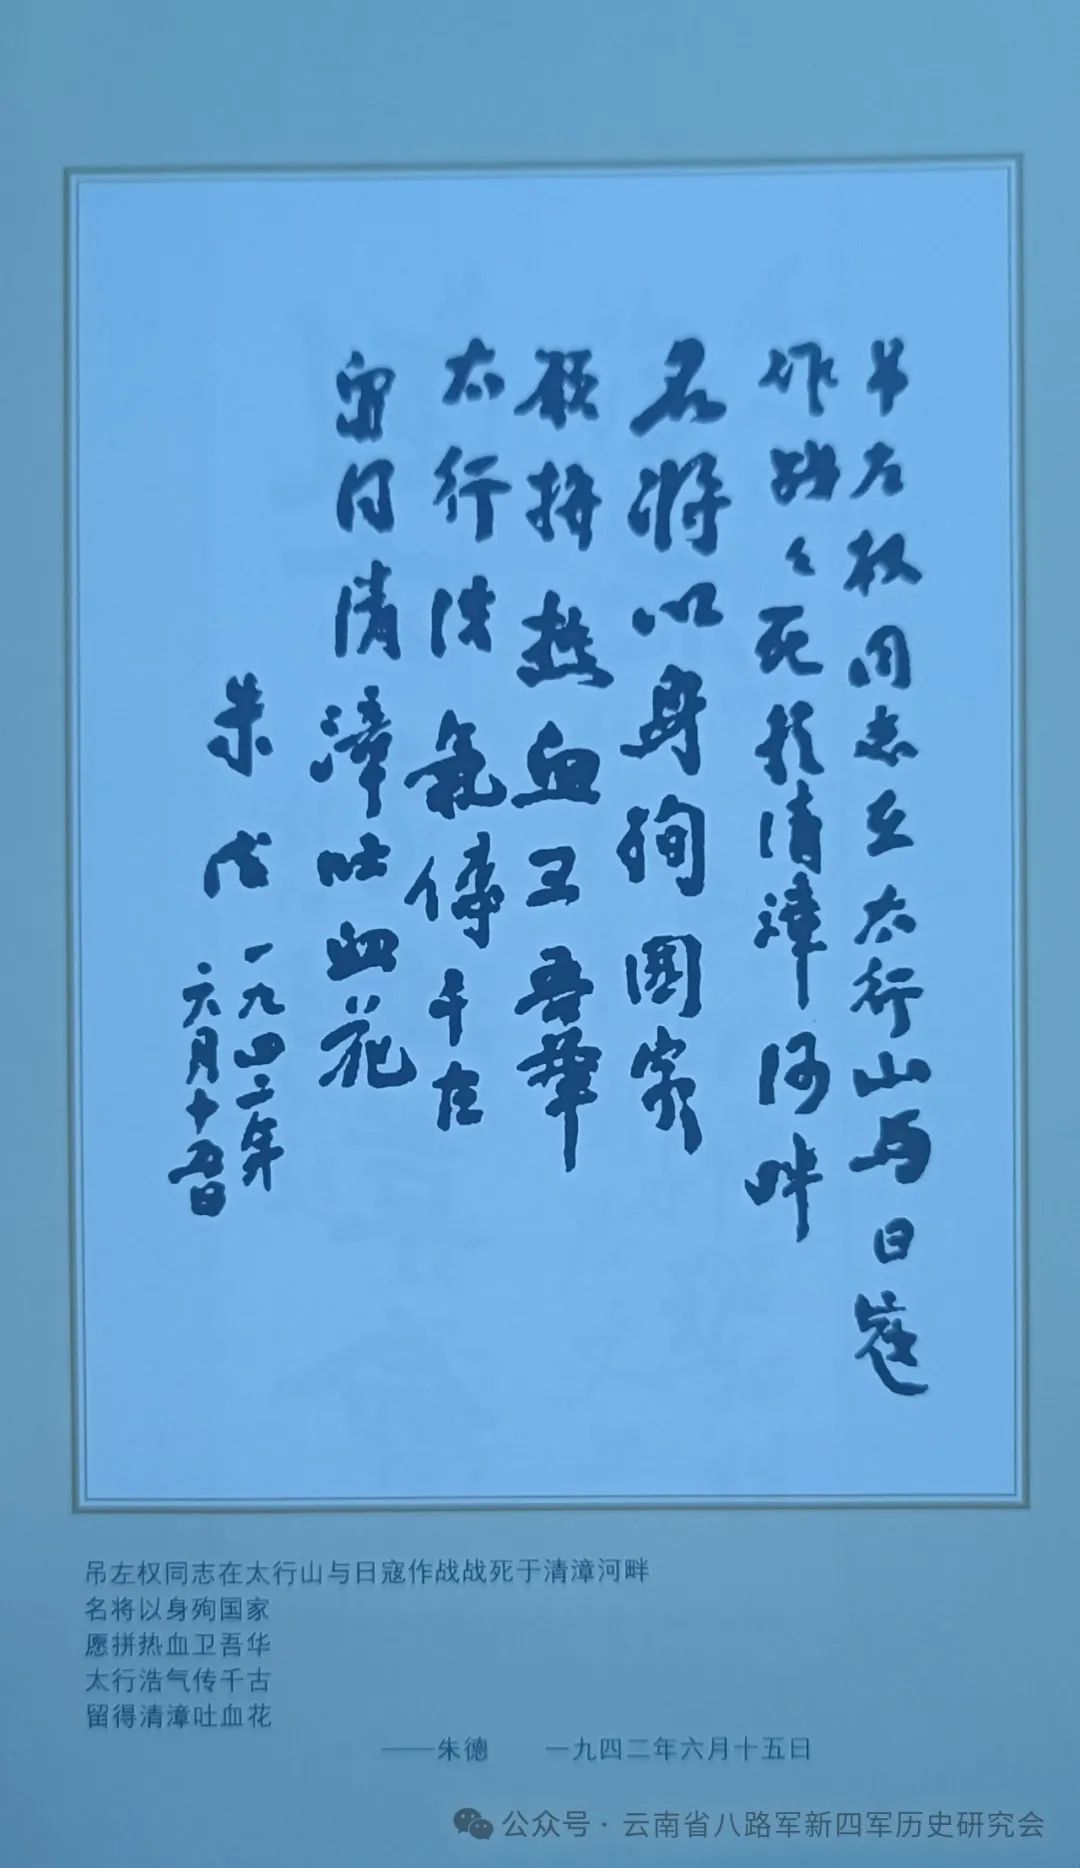 吊左权同志在太行山与日寇
作战々死于清漳河畔
名将以身殉国家
愿拼热血卫吾华
太行浩气传千古
留得清漳吐血花
朱德
一九四二年
六月十五日
吊左权同志在太行山与日寇作战战死于清漳河畔
名将以身殉国家
愿拼热血卫吾华
太行浩气传千古
留得清漳吐血花
——朱德 一九四二年六月十五日
公众号·云南省八路军新四军历史研究会